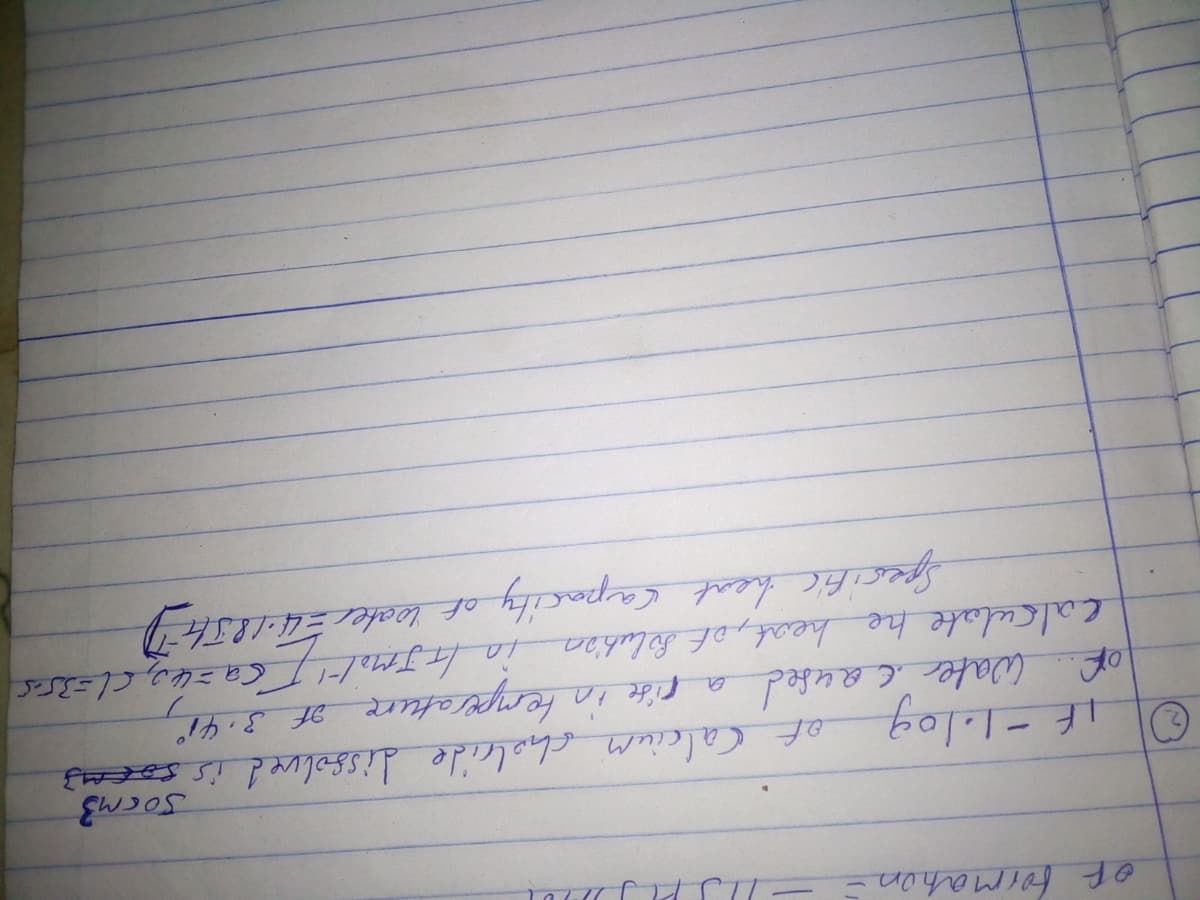 of formation = -115 KJ mol
50cm3
② If - 1.10g of Calcium chloride dissolved is 50cm3
of water caused a rise in temperature of 3.41°
Calculate he heat, of solution in KJmol-1 [Ca=40, Cl=35.5
Specific heat capacity of water = 4.18JK-1]